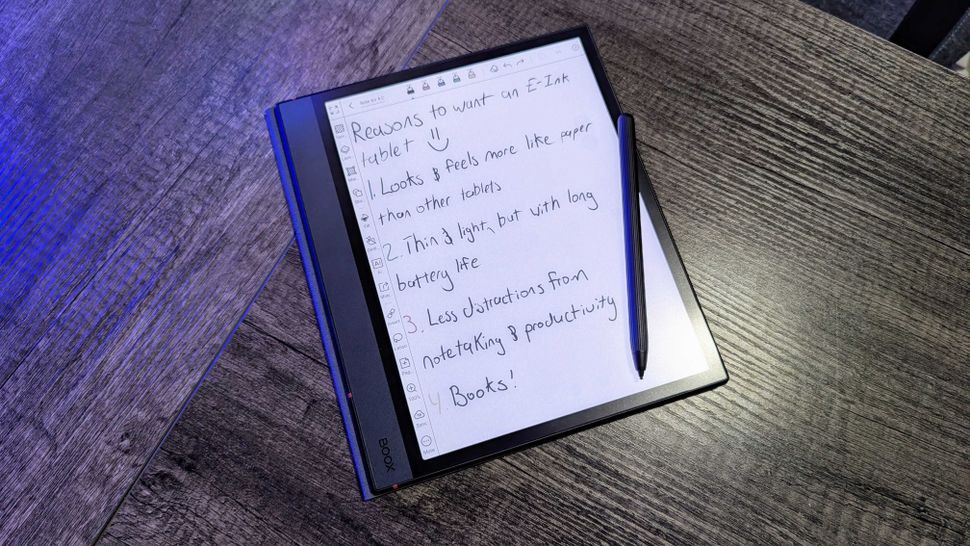 Reasons to want an E-Ink
tablet
1. Looks & feels more like paper
than other tablets
2. Thin & light, but with long
battery life
3. Less distractions from
notetaking & productivity
4 Books!
BOOX